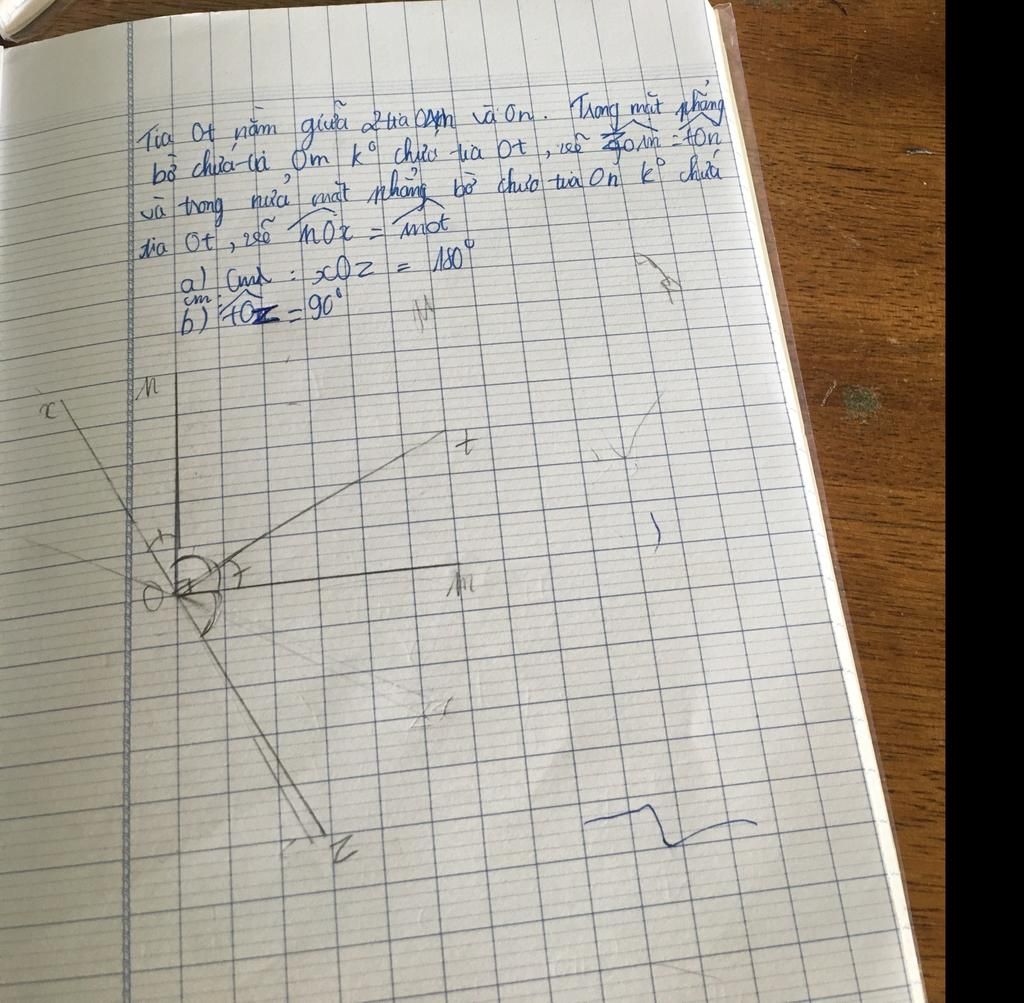 Tia Ot nằm giữa 2 tia Om và On. Trong mặt phẳng
bờ chứa tia Om k° chứa tia Ot, vẽ zOm = tOn
và trong nửa mặt phẳng bờ chứa tia On k° chứa
tia Ot, vẽ nOx = mOt
a) Cm : xOz = 180°
cm
b) tOz = 90°
x
n
t
O
m
z